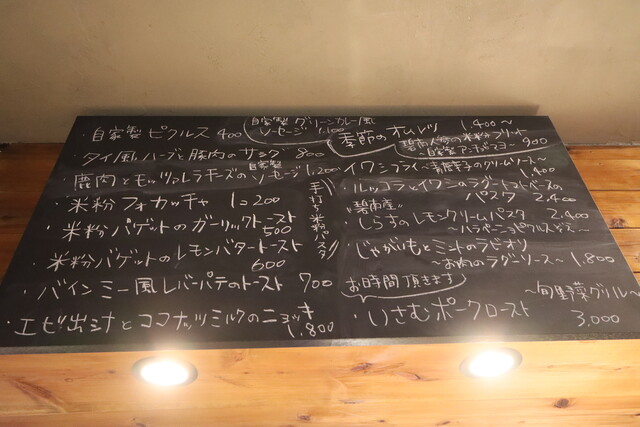 ・自家製ピクルス 400
自家製グリーンカレー風
ソーセージ 1,100
・タイ風ハーブと豚肉のサラダ 800
鹿肉とモッツァレラチーズの自家製ソーセージ 1,200
・米粉フォカッチャ 1コ200
・米粉バゲットのガーリックトースト
500
・米粉バゲットのレモンバタートースト
600
・バインミー風レバーパテのトースト 700
・エビ出汁とココナッツミルクのニョッキ
1,800
手打ち米粉パスタ
季節のオムレツ 1,400〜
碧南人参の米粉フリット
900
イワシフライ
のクリームソース〜
1,400
・ルッコラとイワシのラグートマトベースの
パスタ 2,400
"碧南産"
しらすのレモンクリームパスタ 2,400
〜ハラペーニョピクルス
・じゃがいもとミントのラビオリ
〜お肉のラグーソース〜 1,800
お時間頂きます
・いさむポークロースト
〜旬野菜グリル〜
3,000